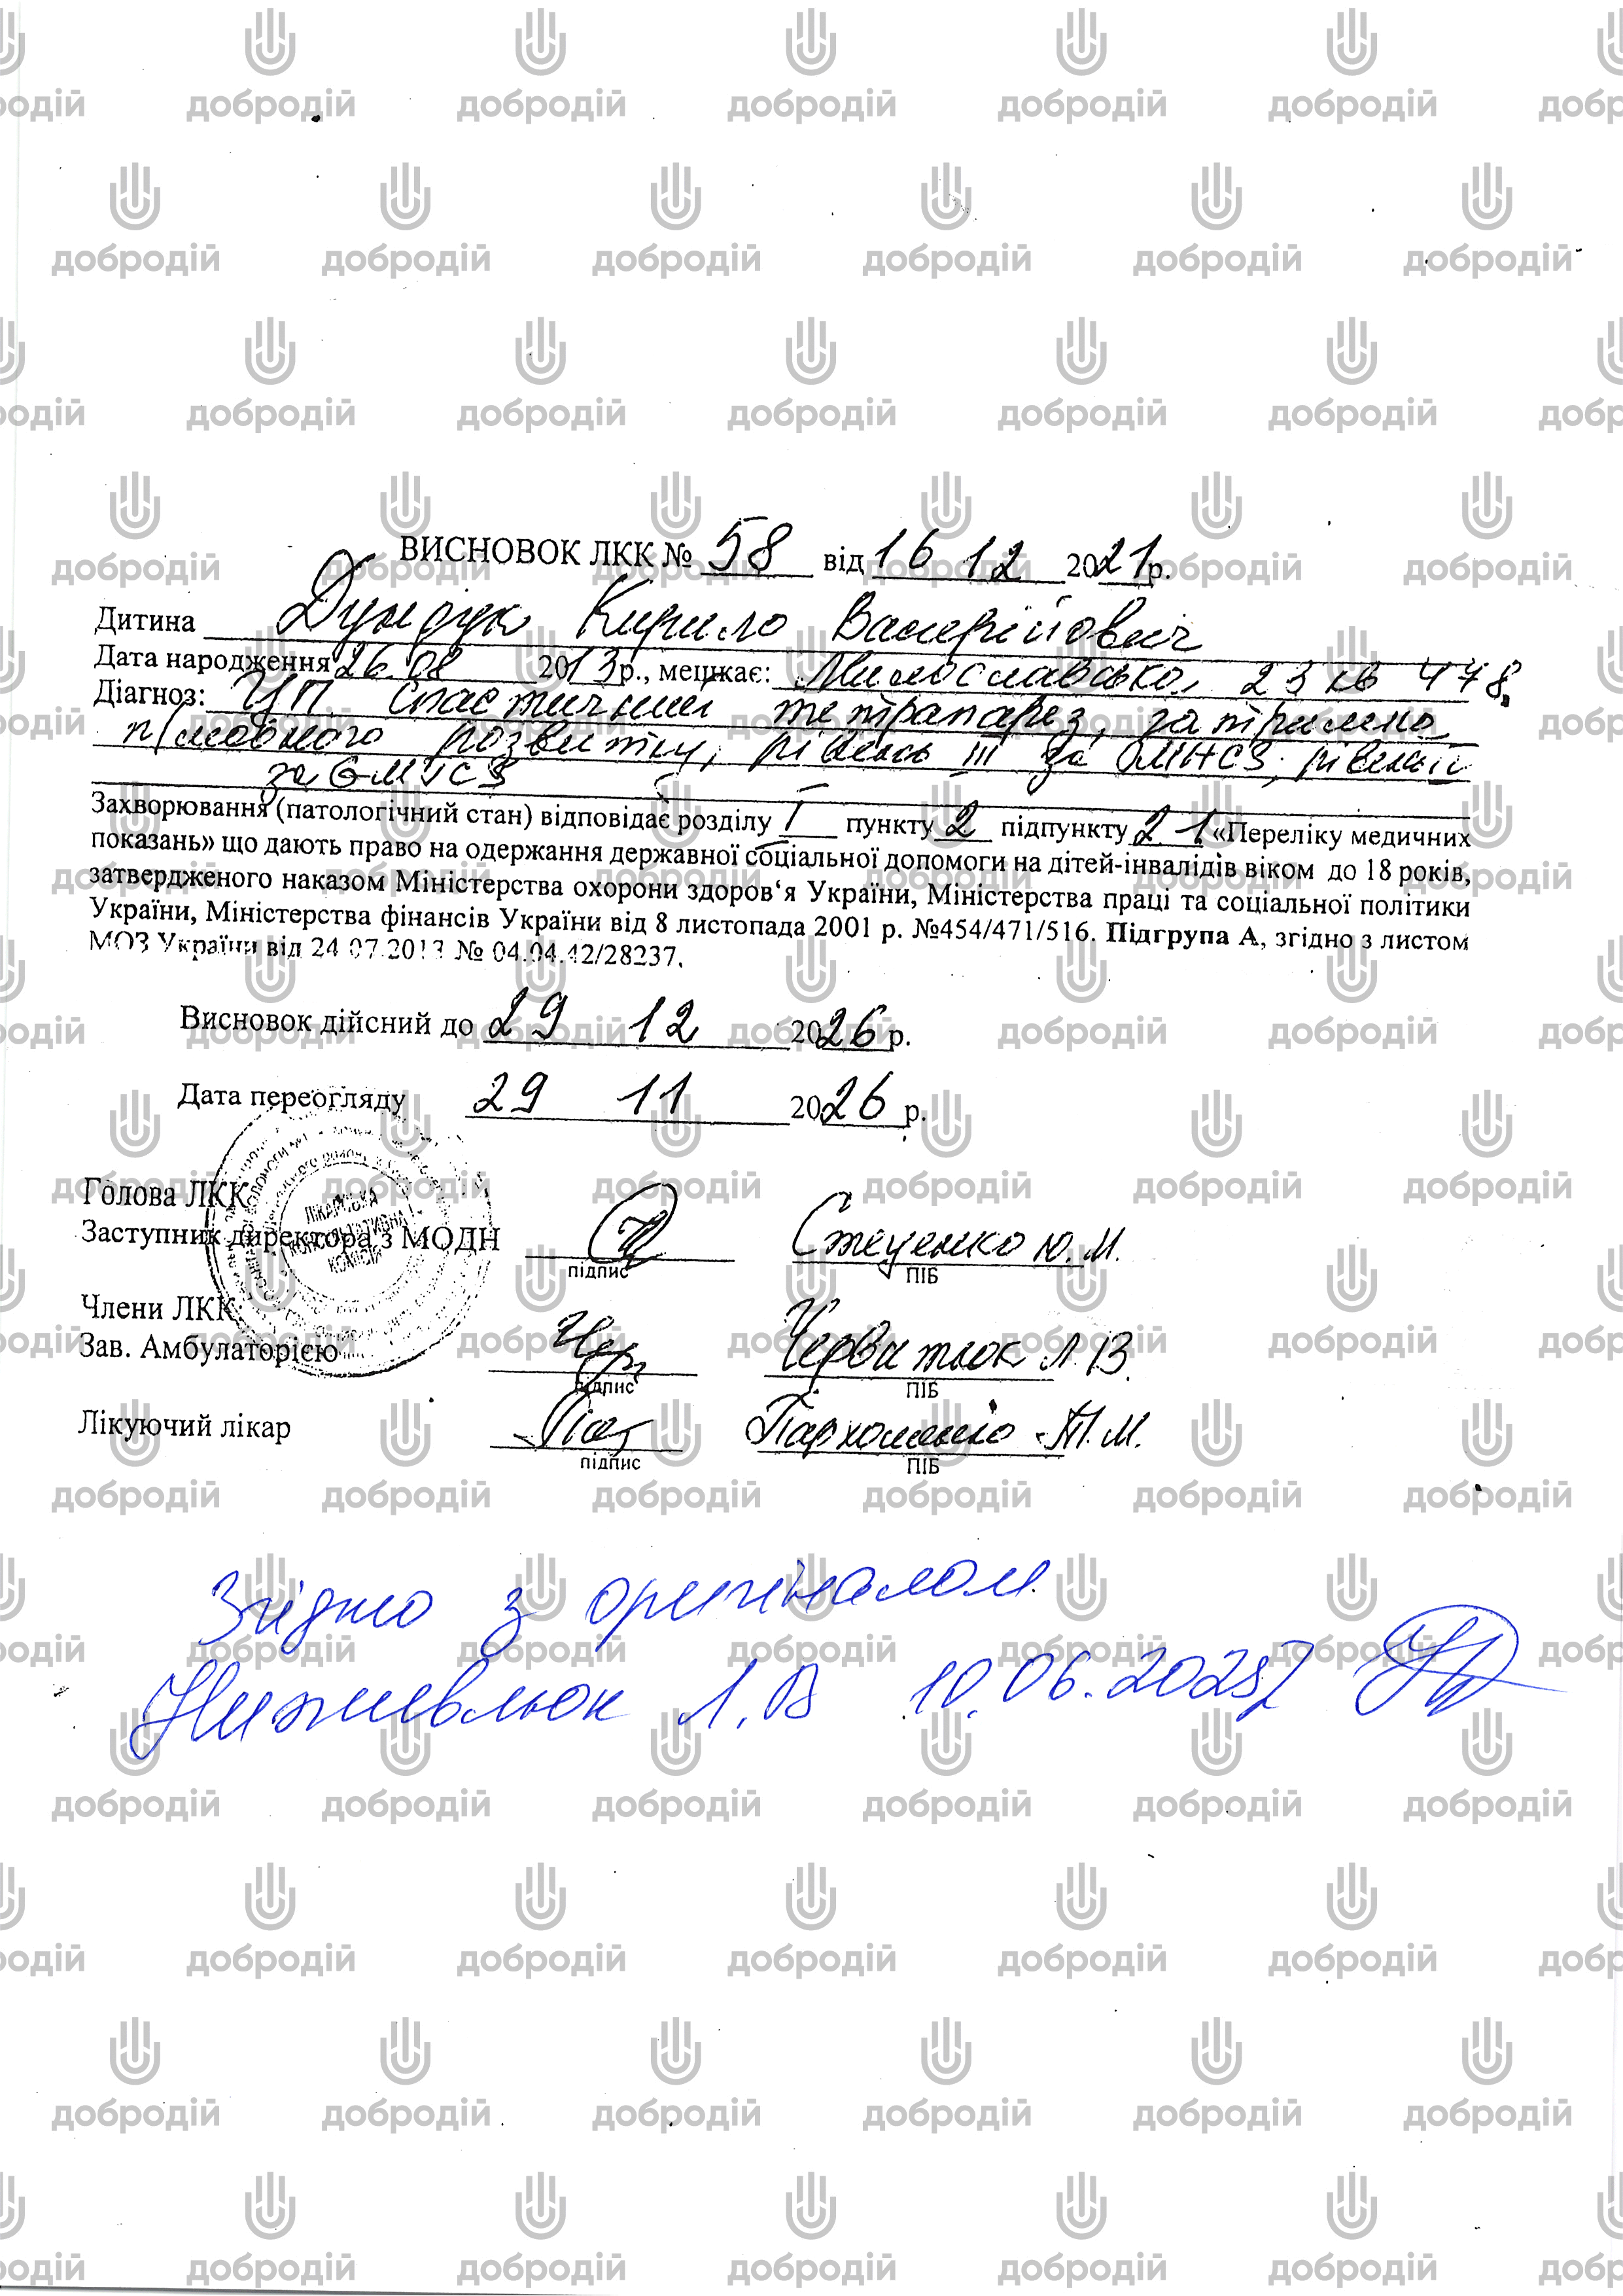 ВИСНОВОК ЛКК № 58 від 16 12 2021р.
Дитина Дундук Кирило Валерійович
Дата народження 26.08 2013р., мешкає: Милославська 23 кв 478
Діагноз: ЦП. Спастичний тетрапарез, затримка
п/мовного розвитку, рівень III за GMFCS, рівень II
за
Захворювання (патологічний стан) відповідає розділу I пункту 2 підпункту 2.1 «Переліку медичних
показань» що дають право на одержання державної соціальної допомоги на дітей-інвалідів віком до 18 років,
затвердженого наказом Міністерства охорони здоров‘я України, Міністерства праці та соціальної політики
України, Міністерства фінансів України від 8 листопада 2001 р. №454/471/516. Підгрупа А, згідно з листом
МОЗ України від 24.07.2013 № 04.04.42/28237.
Висновок дійсний до 29 12 2026 р.
Дата переогляду 29 11 2026 р.
Голова ЛКК
Заступник директора з МОДН Стеценко Ю.М.
підпис ПІБ
Члени ЛКК:
Зав. Амбулаторією Л.В.
підпис ПІБ
Лікуючий лікар Пархоменко Т.М.
підпис ПІБ
ЛІКАРСЬКА
КОНСУЛЬТАТИВНА
КОМІСІЯ
Згідно з оригіналом
Л.В 10.06.2025
добродій